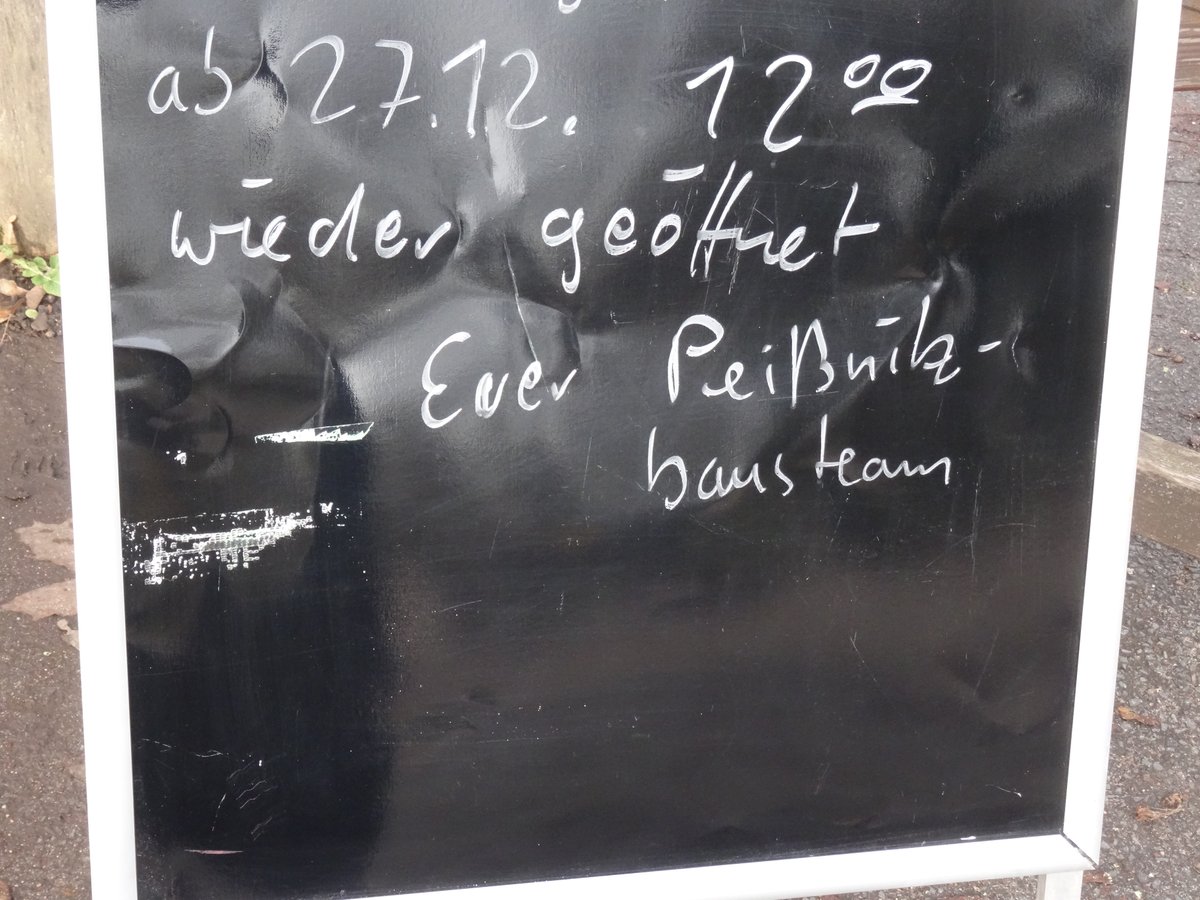 ab 27.12. 12⁰⁰
wieder geöffnet
Euer Peißnitz-
hausteam